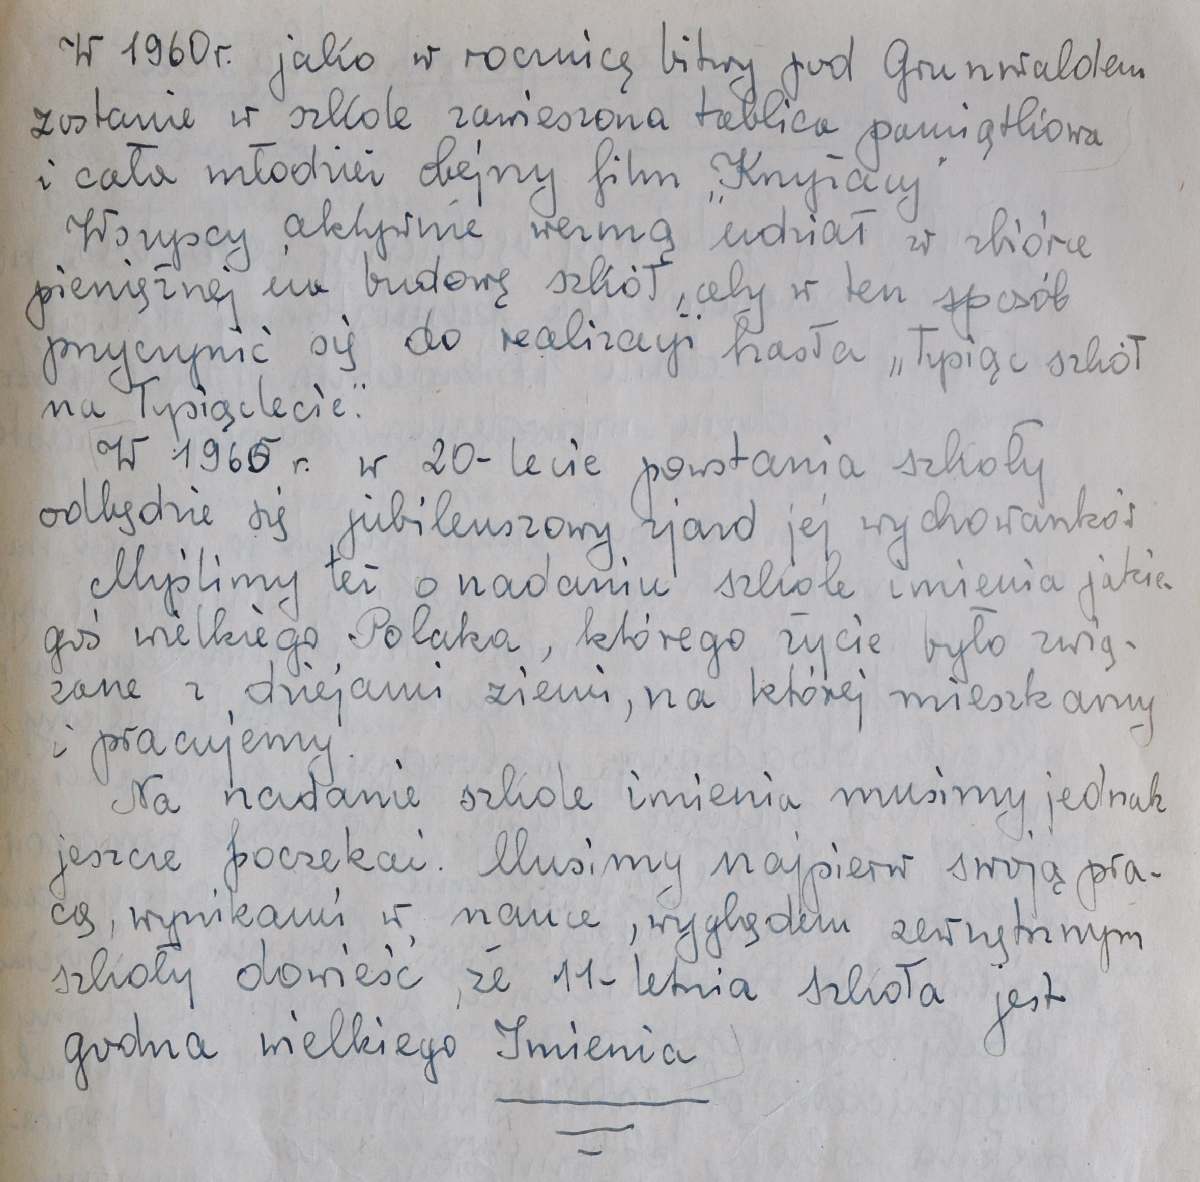 W 1960r. jako w rocznicę bitwy pod Grunwaldem
zostanie w szkole zawieszona tablica pamiątkowa
i cała młodzież obejrzy film „Krzyżacy"
Wszyscy aktywnie wezmą udział w zbiórce
pieniężnej na budowę szkół, aby w ten sposób
przyczynić się do realizacji hasła „Tysiąc szkół
na Tysiąclecie".
W 1965 r. w 20-lecie powstania szkoły
odbędzie się jubileuszowy zjazd jej wychowanków
Myślimy też o nadaniu szkole imienia jakie-
goś wielkiego Polaka, którego życie było zwią-
zane z dziejami ziemi, na której mieszkamy
i pracujemy.
Na nadanie szkole imienia musimy jednak
jeszcze poczekać. Musimy najpierw swoją pra-
cą, wynikami w nauce, wyglądem zewnętrznym
szkoły dowieść, że 11-letnia szkoła jest
godna wielkiego Imienia